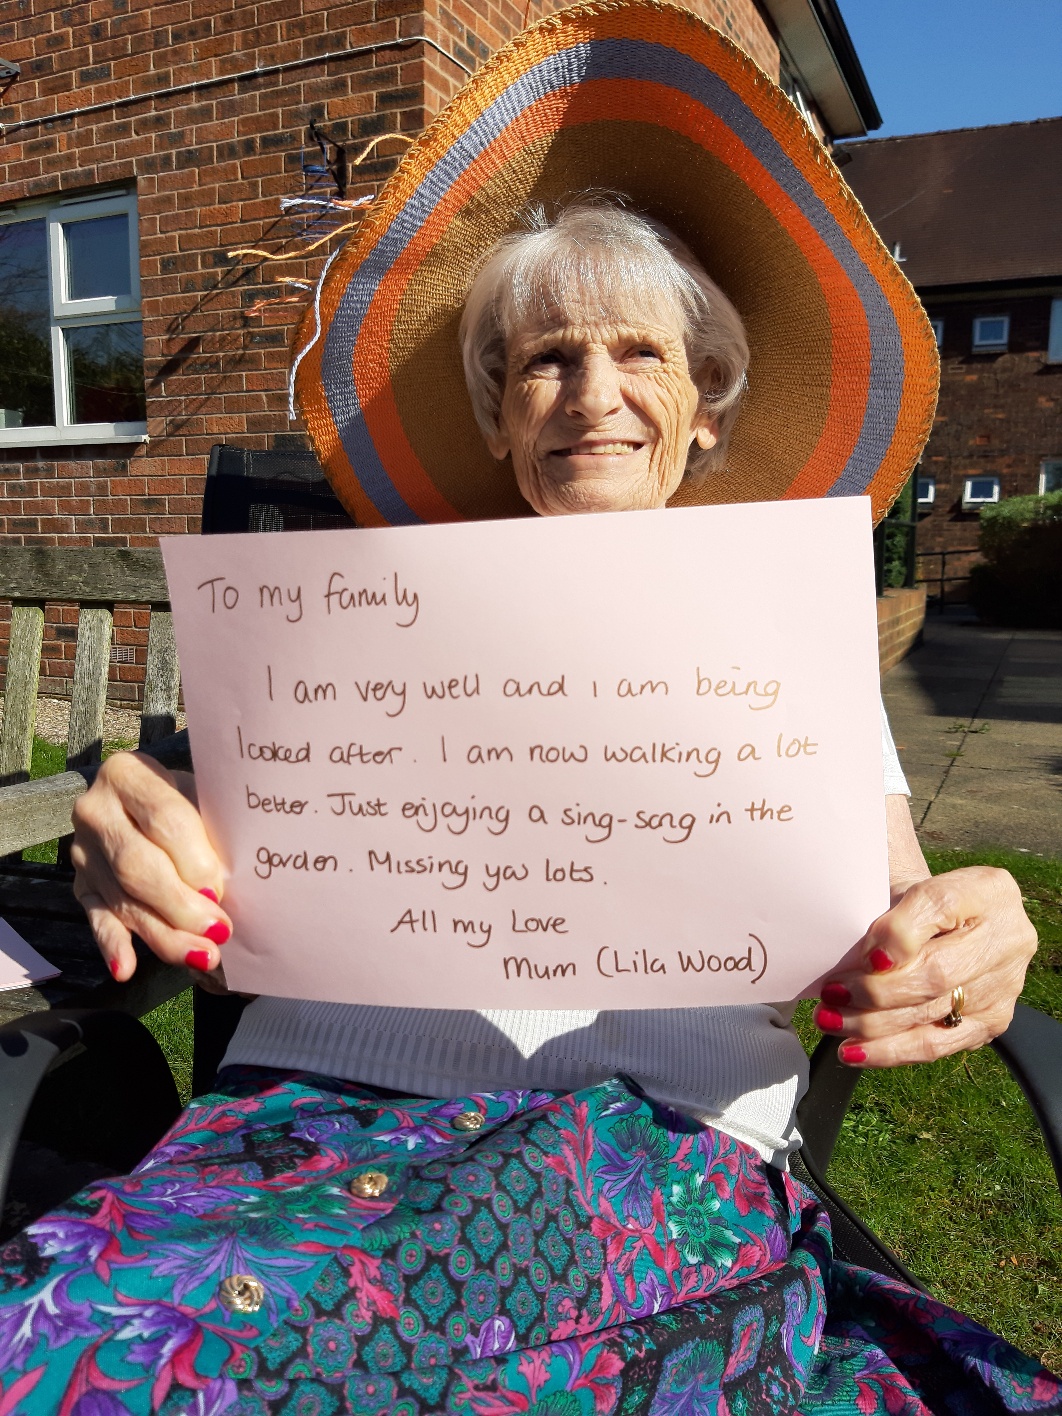 To my family
I am very well and i am being
looked after. I am now walking a lot
better. Just enjoying a sing-song in the
garden. Missing you lots.
All my Love
Mum (Lila Wood)